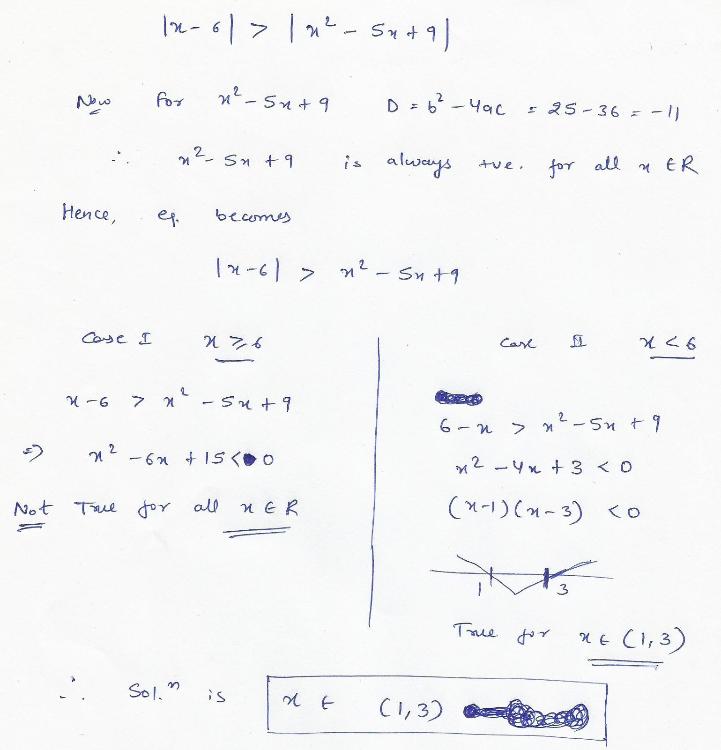 |x - 6| > |x² - 5x + 9|
Now for x² - 5x + 9 D = b² - 4ac = 25 - 36 = -11
∴ x² - 5x + 9 is always +ve. for all x ∈ R
Hence, eq. becomes
|x - 6| > x² - 5x + 9
Case I x ≥ 6
x - 6 > x² - 5x + 9
⇒ x² - 6x + 15 < 0
Not True for all x ∈ R
Case II x < 6
6 - x > x² - 5x + 9
x² - 4x + 3 < 0
(x-1)(x-3) < 0
1 3
True for x ∈ (1, 3)
∴ Sol.ⁿ is x ∈ (1, 3)